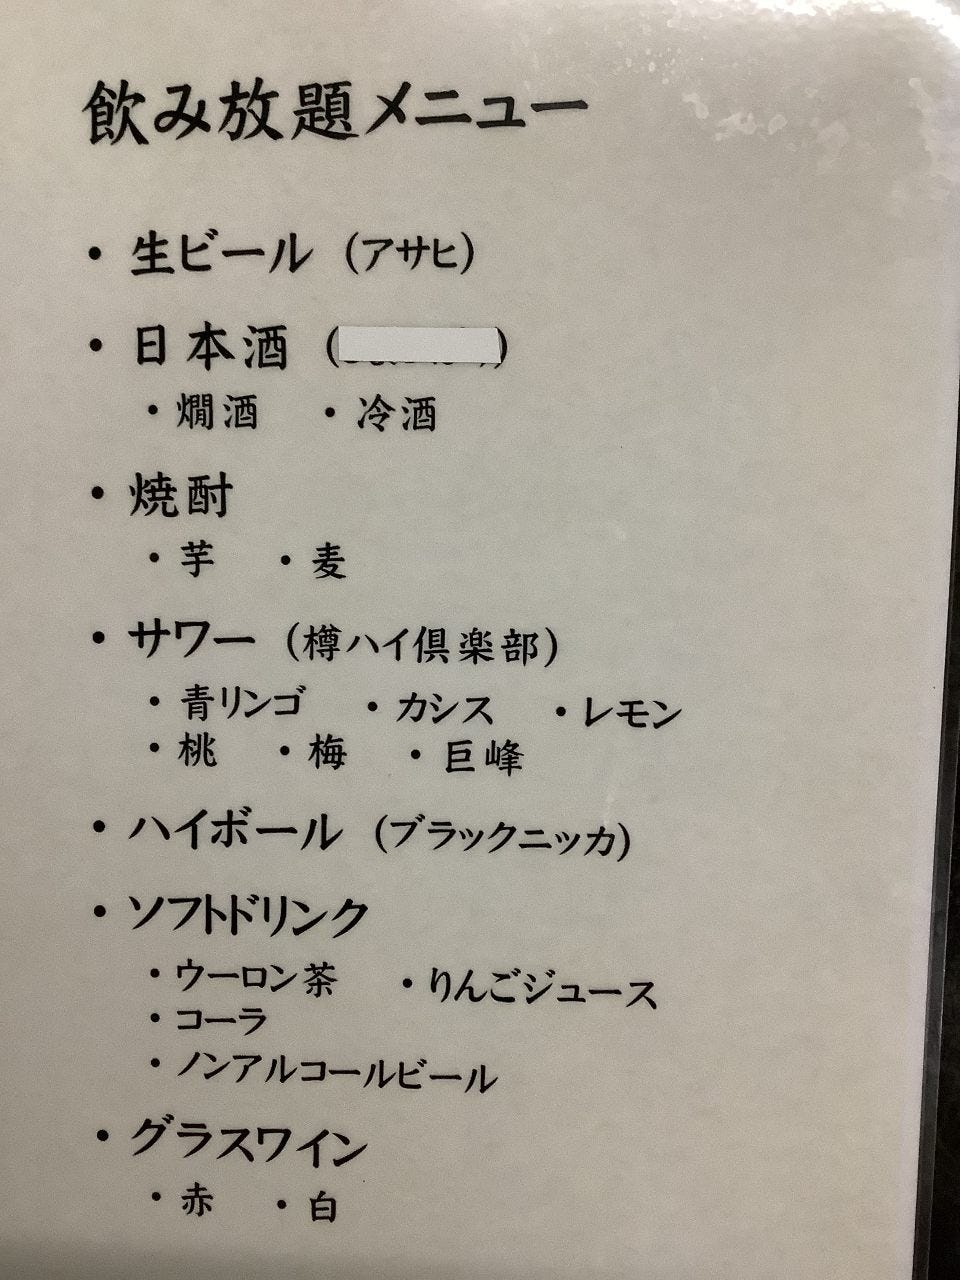 飲み放題メニュー
・生ビール (アサヒ)
・日本酒 ( )
・燗酒 ・冷酒
・焼酎
・芋 ・麦
・サワー (樽ハイ倶楽部)
・青リンゴ ・カシス ・レモン
・桃 ・梅 ・巨峰
・ハイボール (ブラックニッカ)
・ソフトドリンク
・ウーロン茶 ・りんごジュース
・コーラ
・ノンアルコールビール
・グラスワイン
・赤 ・白